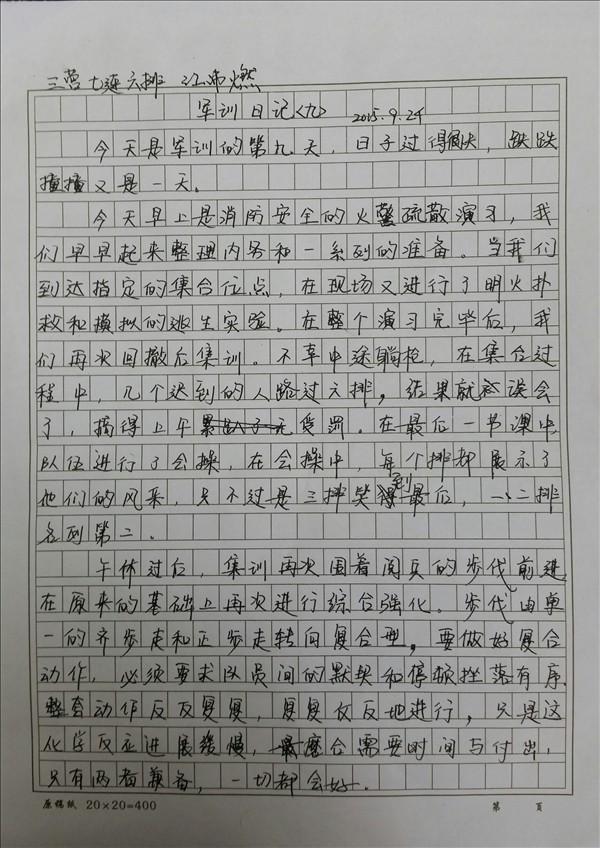 三营七连六排 江沛燃
军训日记<九> 2015.9.24
今天是军训的第九天，日子过得很快，跌跌
撞撞又是一天。
今天早上是消防安全的火警疏散演习，我
们早早起来整理内务和一系列的准备。当我们
到达指定的集合位点，在现场又进行了明火扑
救和模拟的逃生实验。在整个演习完毕后，我
们再次回撤后集训。不幸中途躺枪，在集合过
程中，几个迟到的人路过六排，结果就被误会
了，搞得上午受罚。在最后一节课中
队伍进行了会操，在会操中，每个排都展示了
他们的风采，只不过是三排笑到最后，一、二排
名列第二。
午休过后，集训再次围着阅兵的步伐前进
在原来的基础上再次进行综合强化。步伐由单
一的齐步走和正步走转向复合型，要做好复合
动作，必须要求队员间的默契和停顿挫落有序
整套动作反反复复，复复反反地进行，只是这
化学反应进展缓慢，磨合需要时间与付出，
只有两者兼备，一切都会好.
原稿纸 20×20=400 第 页